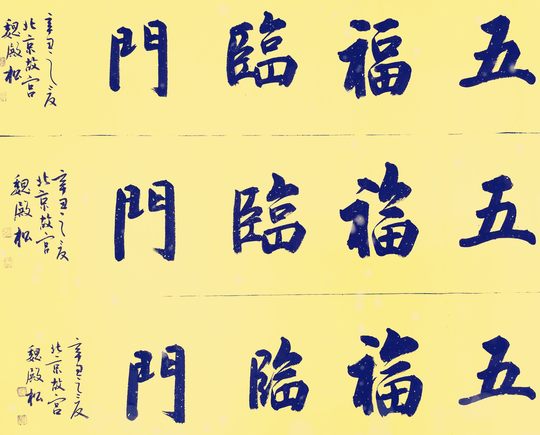 五福臨門
辛丑之夏
北京故宫
魏殿松
五福臨門
辛丑之夏
北京故宫
魏殿松
五福臨門
辛丑之夏
北京故宫
魏殿松